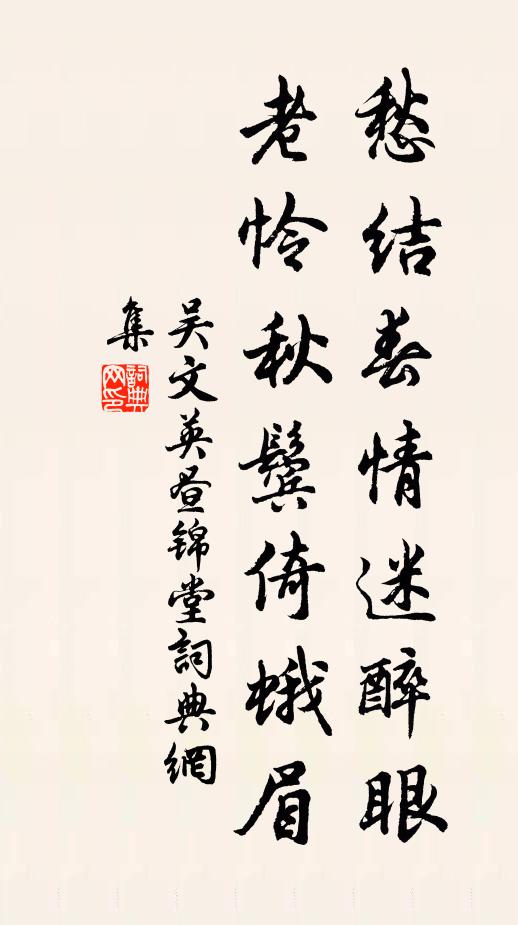 愁结春情迷醉眼
老怜秋鬓倚蛾眉
吴文英昼锦堂詞典網
集
詞典網印